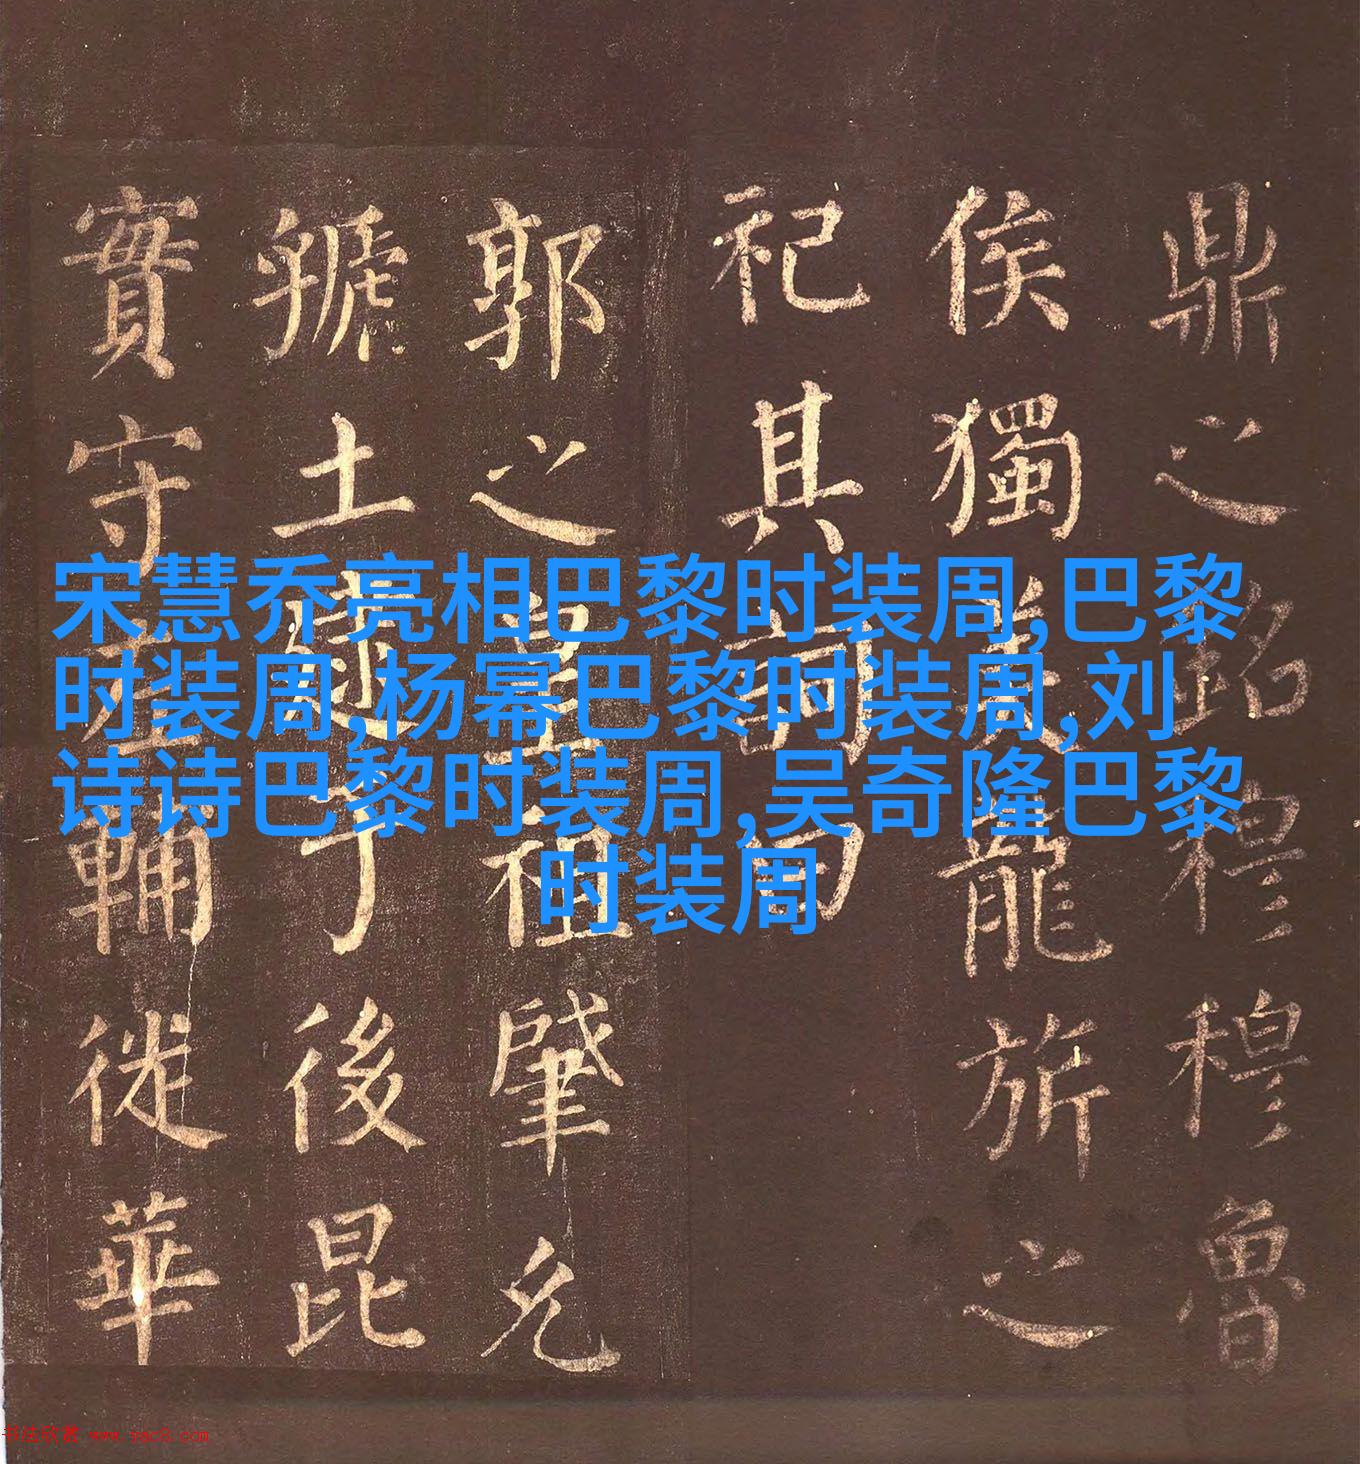 鼎之銘穆穆魯
侯獨美龍旂之
祀其詞曰
郭之皇祖肇允
虢土逮于後昆
實守左輔徙華
宋慧乔亮相巴黎时装周,巴黎
时装周,杨幂巴黎时装周,刘
诗诗巴黎时装周,吴奇隆巴黎
时装周
书法欣赏 www.yac8.com